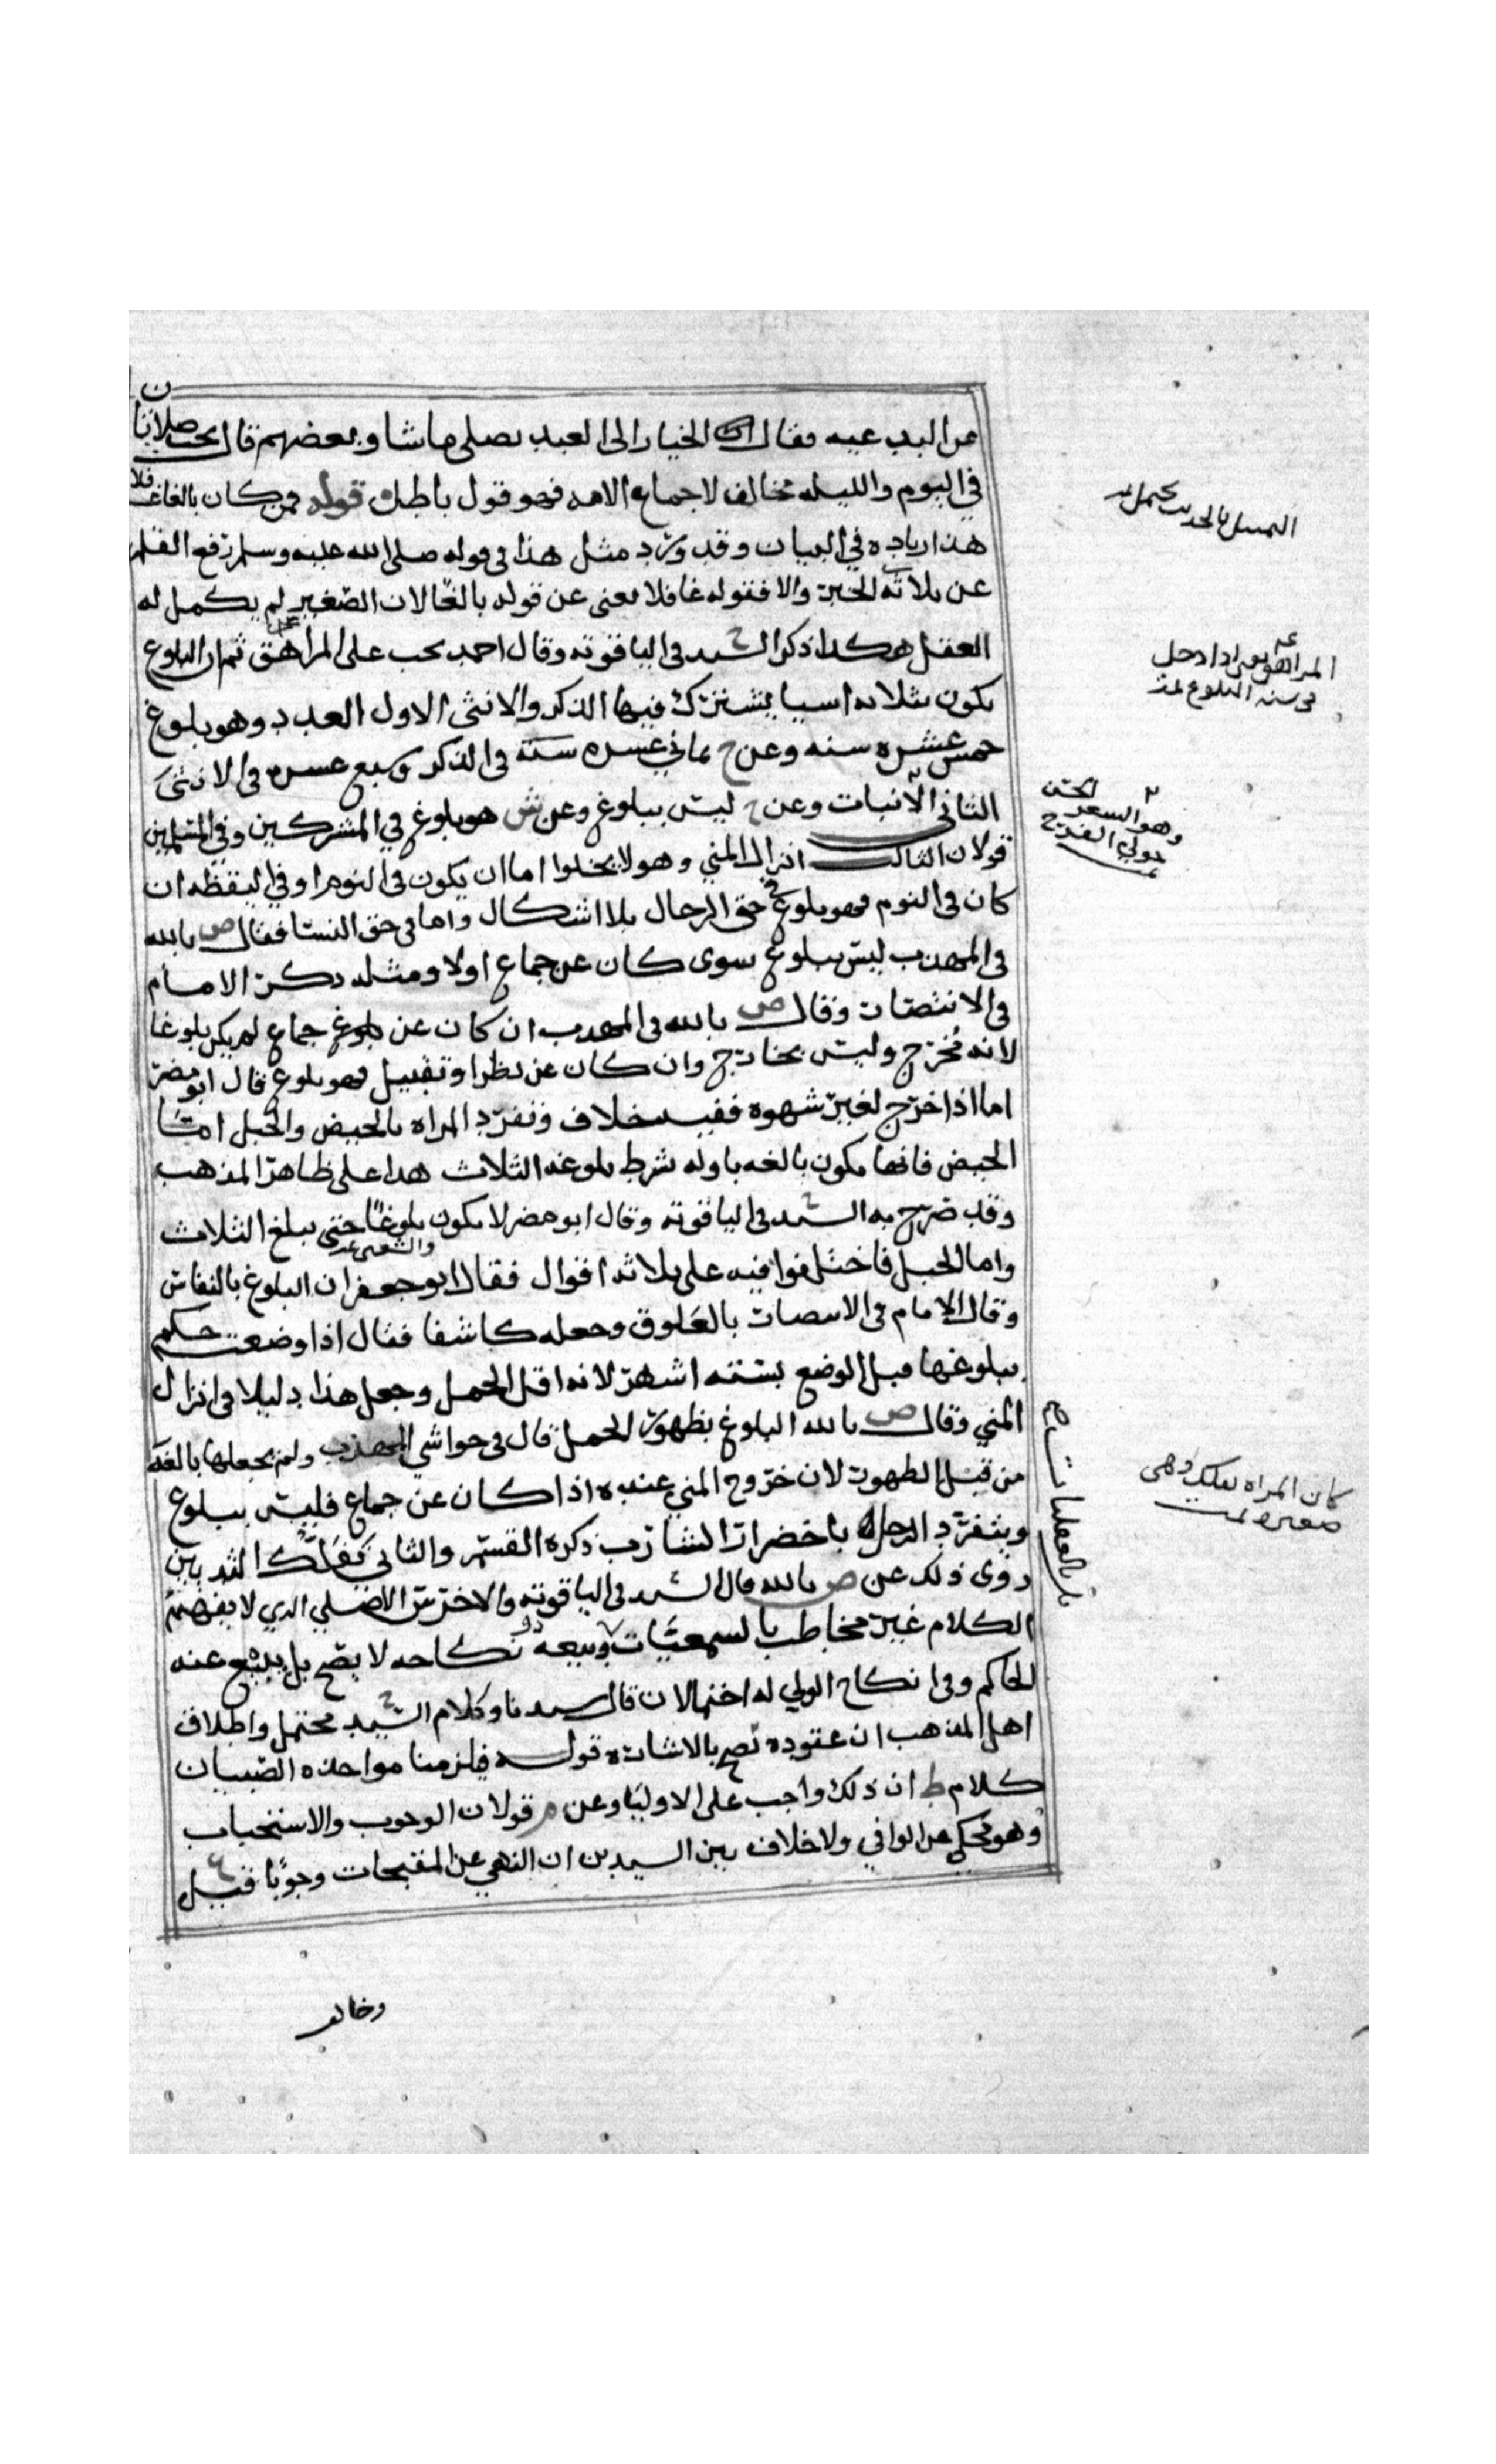 عن البدعيه فقال ان الخيار الى العبد يصلي ما شا وبعضهم قال يجب صلاتان
في اليوم والليله مخالف لاجماع الامه فهو قول باطل قوله فمن كان بالغا عاقلا
هذا زياده في البيان وقد ورد مثل هذا في قوله صلى الله عليه وسلم رفع القلم
عن ثلاثه الخبر والا فقوله عاقلا معنى عن قوله بالغا لان الصغير لم يكمل له
العقل هكذا ذكر السيد ح في الياقوته وقال احمد يجب على المراهق ثم ان البلوغ
يكون بثلاثه اسيا يشترك فيها الذكر والانثى الاول العدد وهو بلوغ
خمس عشره سنه وعن ح ثماني عسره سنة في الذكر وسبع عسره في الانثى
الثاني الانبات وعن ح ليس ببلوغ وعن ش هو بلوغ في المشركين وفي المسلمين
قولان الثالث انزال المني وهو لا يخلوا اما ان يكون في النوم او في اليقظه ان
كان في النوم فهو بلوغ في حق الرجال بلا اشكال واما في حق النسا فقال ص بالله
في المهذب ليس ببلوغ سوى كان عن جماع اولا ومثله ذكر الامام
في الانتصار وقال ص بالله في المهذب ان كان عن جماع لم يكن بلوغا
لانه مُخرَج وليس بخارج وان كان عن نظر او تقبيل فهو بلوغ قال ابو مضر
اما اذا خرج لغير شهوه ففيه خلاف وتنفرد المراه بالحيض والحبل امّا
الحيض فانها يكون بالغه باوله شرط بلوغه الثلاث هذا على ظاهر المذهب
وقد صرح به السيد ح في الياقوته وقال ابو مضر لا يكون بلوغًا حتى يبلغ الثلاث
واما الحبل فاختلفوا فيه على ثلاثه اقوال فقال ابو جعفر ان البلوغ بالنفاس
وقال الامام في الانتصار بالعَلوق وجعله كاشفا فقال اذا وضعت حكم
ببلوغها قبل الوضع بستة اشهر لانه اقل الحمل وجعل هذا دليلا في انزال
المني وقال ص بالله البلوغ بظهور الحمل قال في حواشي المهذب ولم يجعلها بالغه
من قبل الظهور لان خروج المني عنده اذا كان عن جماع فليس ببلوغ
وينفرد الرجل باخضرار الشارب ذكره القسم والثاني تَفَلُّك الثديين
روى ذلك عن ص بالله قال السيد ح في الياقوته والاخرس الاصلي الذي لا يفهم
الكلام غير مخاطب بالسمعيات وبيعه ونكاحه لا يصح بل يبيع عنه
الحاكم وفي انكاح الولي له احتمالان قال سيدنا وكلام السيد ح محتمل واطلاق
اهل المذهب ان عقوده تصح بالاشاره قوله فيلزمنا مواخذه الصبيان
كلام ط ان ذلك واجب على الاوليا وعن م قولان الوجوب والاستحباب
وهو محكي عن الوافي ولا خلاف بين السيدين ان النهي عن المقبحات وجوبا قبل
وخالف
المراهق اذا دخل
في سنه البلوغ
كان المراه وهى
صغيره